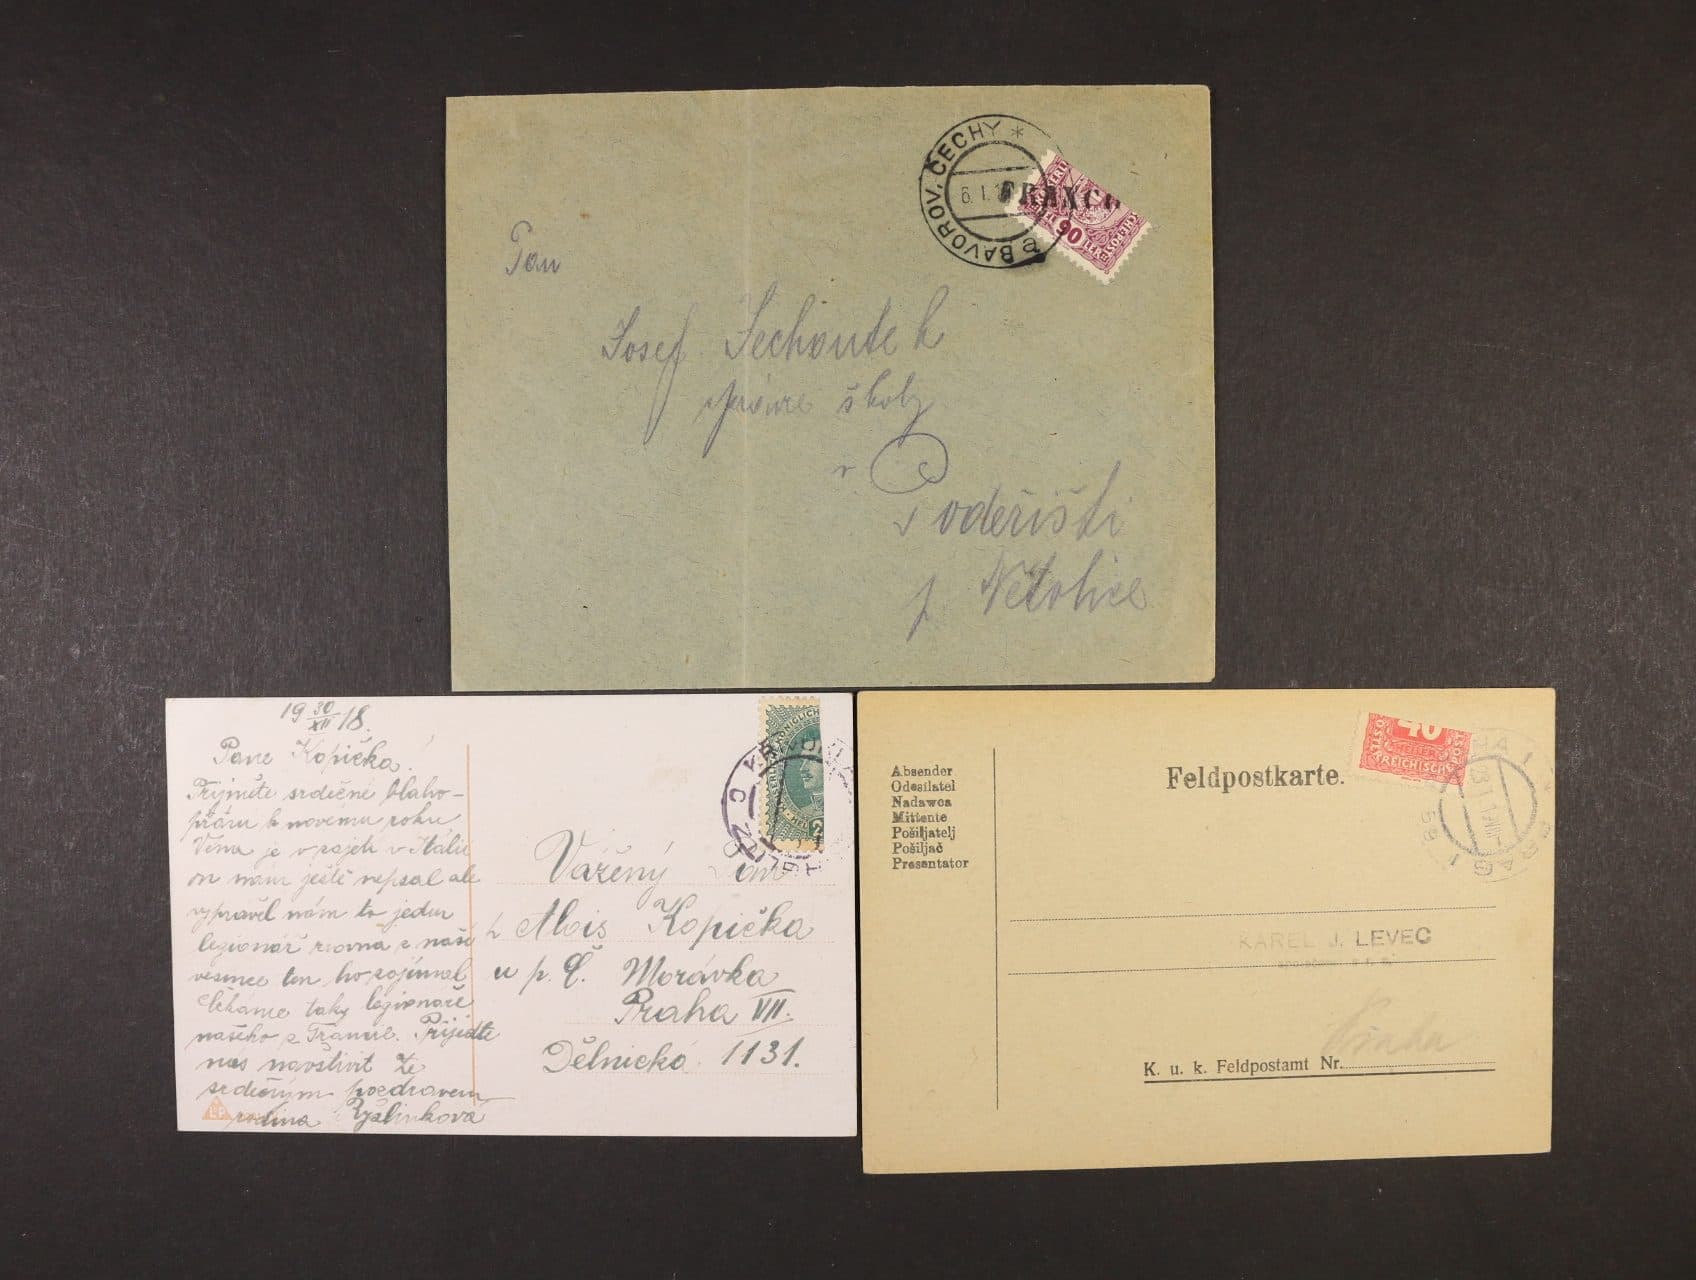 BAVOROV. ČECHY *
6. I. 1
FRANCO
90
Pan
Josef Sechoutek
správce školy
v
Poděřišti
p. Netolice
19 30/XII 18.
Pane Kopička!
Přijměte srdečné blaho-
přání k novému roku
Véna je v zajetí v Itálii
on nám ještě nepsal ale
vypravěl nám to jeden
legionář rovna z naší
vesnice ten ho zajímal
čekáme taky legionáře
našeho z Francie. Přijedte
nás navštívit Ze
srdečným pozdravem
rodina
KAISERLICH KÖNIGLICH
Vážený Pan
Alois Kopička
u p. Č. Morávka
Praha VII.
Dělnická 1131.
Feldpostkarte.
40
HELLER
Absender
Odesilatel
Nadawca
Mittente
Pošiljatelj
Pošiljač
Presentator
KAREL J. LEVEC
K. u. k. Feldpostamt Nr.